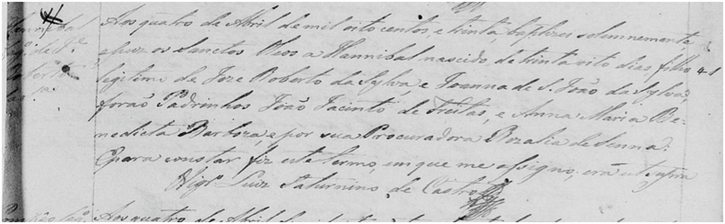 Aos quatro de Abril de mil oito centos, e trinta, baptizei solemnemente,
e puz os Sanctos Oleos a Hannibal nascido de trinta e oito dias, filho
legitimo de Joze Roberto da Sylva, e Joanna de S. João da Sylva;
forão Padrinhos João Jacinto de Freitas, e Anna Maria Be-
nedicta Barboza, e por sua Procuradora Rozalia de Senna.
E para constar fiz este termo, em que me assigno, era ut supra
Vigr.º Luiz Saturnino de Castro
Aos quatro de Abril